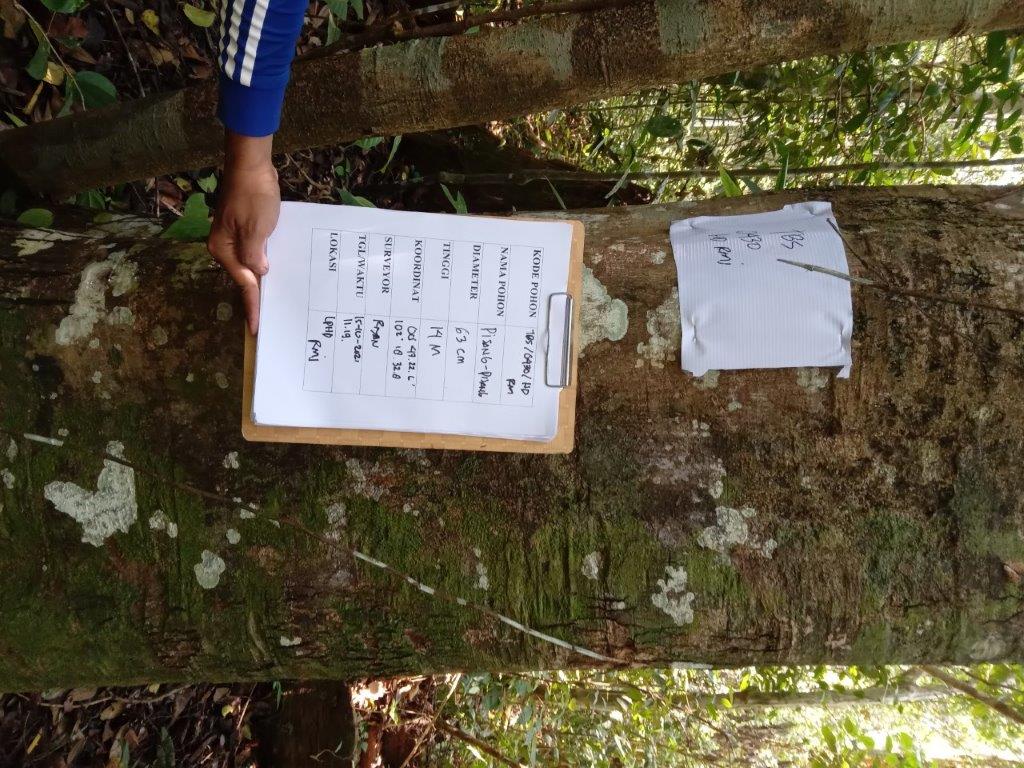 TBS
0430
HD RMI
KODE POHON TBS/0430/HD
RM
NAMA POHON PISANG-PISANG
DIAMETER 63 cm
TINGGI 14 M
KOORDINAT
102° 18. 32.8
SURVEYOR RIYAN
TGL/WAKTU 15-10-2021
11.19.
LOKASI LPHD
RMI